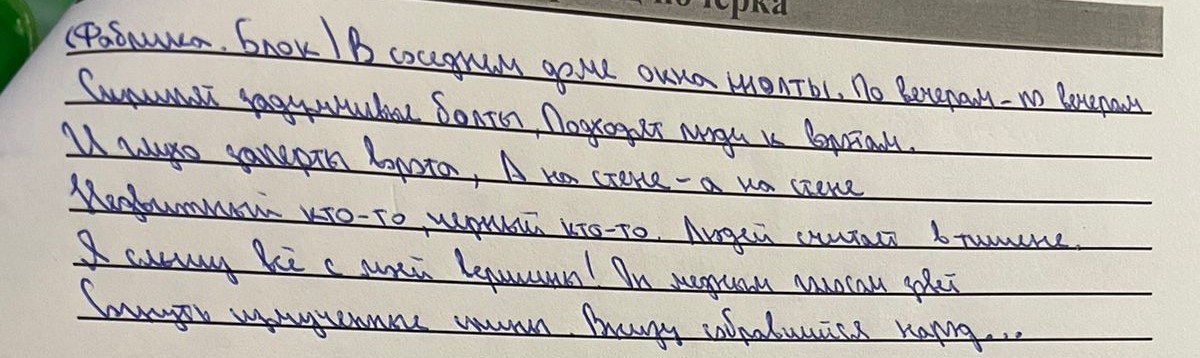 почерка
(Фабрика. Блок) В соседнем доме окна жолты. По вечерам – по вечерам
Скрипят задумчивые болты, Подходят люди к воротам.
И глухо заперты ворота, А на стене – а на стене
Недвижный кто-то, черный кто-то. Людей считает в тишине.
Я слышу всё с моей вершины! Он медным голосом зовет
Согнуть измученные спины. Внизу собравшийся народ...